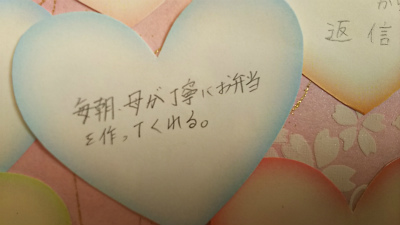 毎朝、母が丁寧にお弁当
を作ってくれる。
返信